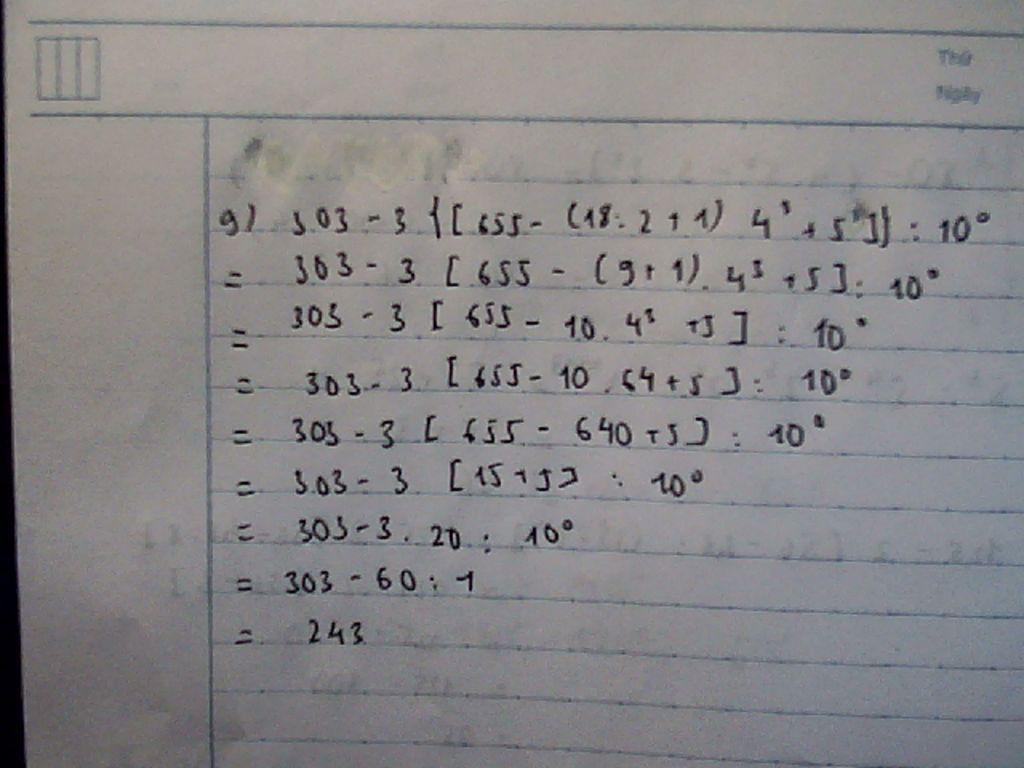 Thứ
Ngày
g) 303 - 3 {[655 - (18: 2 + 1) 4³ + 5]} : 10⁰
= 303 - 3 [655 - (9+1). 4³ +5]: 10⁰
= 303 - 3 [655 - 10. 4³ +5] : 10⁰
= 303 - 3 [655 - 10 .64+5]: 10⁰
= 303 - 3 [655 - 640 +5] : 10⁰
= 303 - 3 [15 +5] : 10⁰
= 303 - 3. 20 : 10⁰
= 303 - 60 : 1
= 243